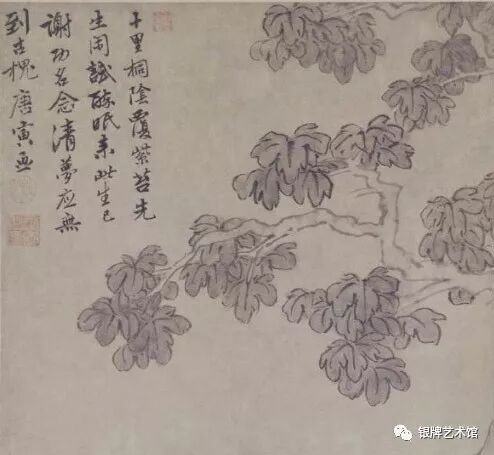 十里桐陰覆紫苔先
生閒試醉眠來此生已
謝功名念清夢應無
到古槐唐寅畫
银牌艺术馆